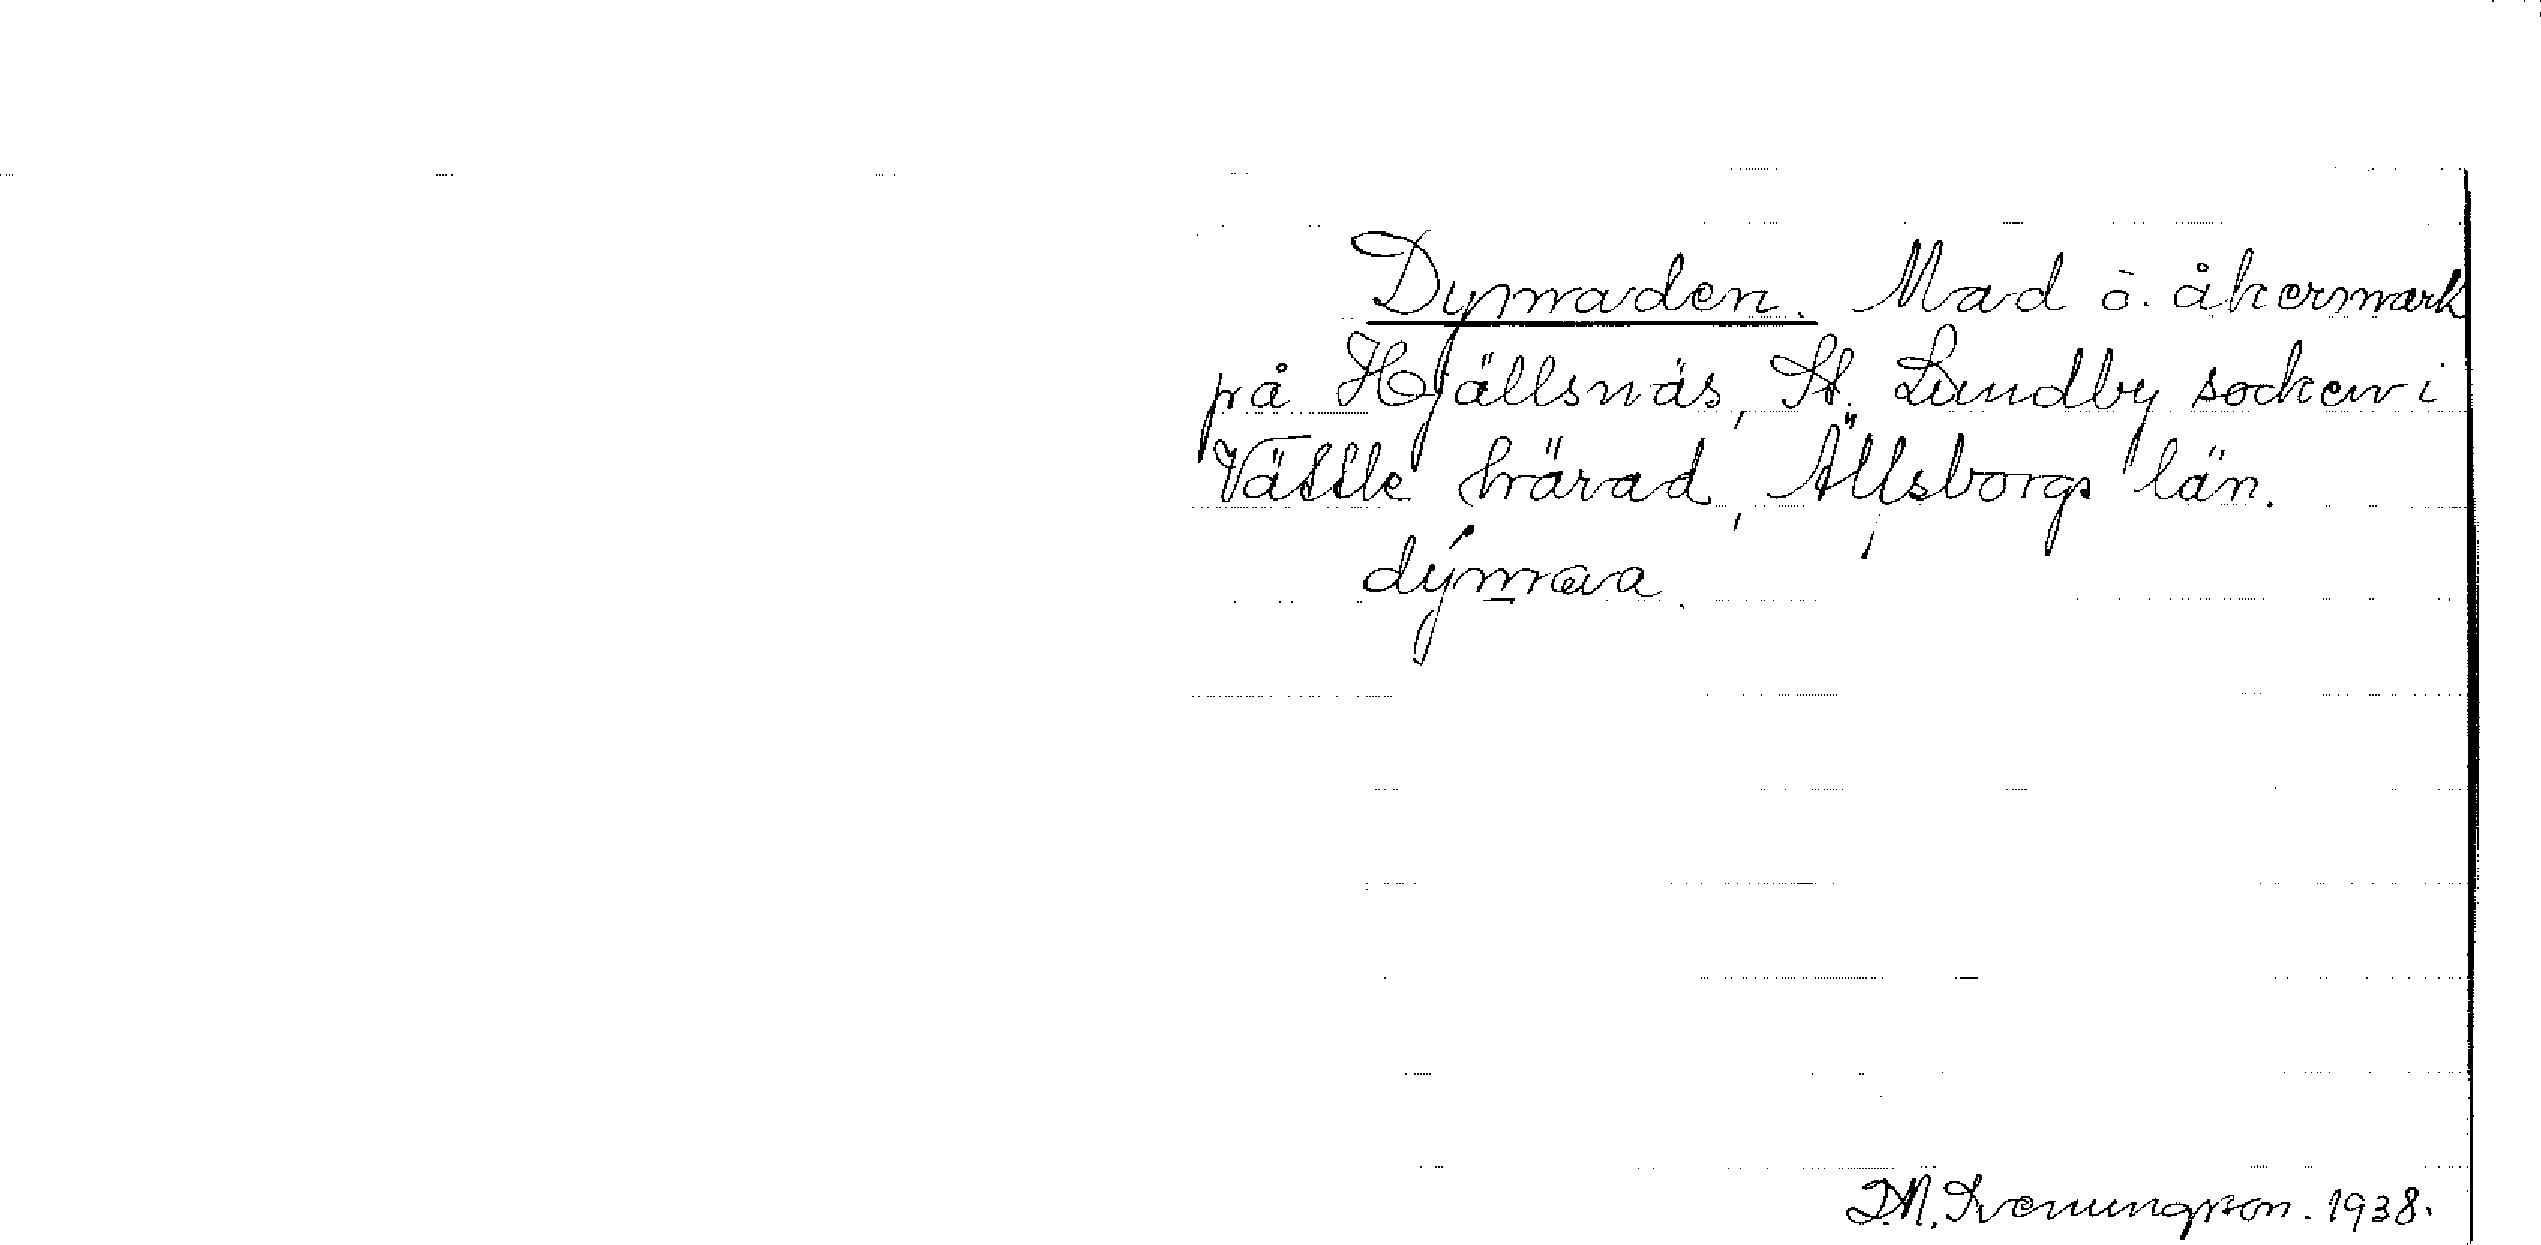 Dymaden. Mad o. åkermark
på Hjällsnäs, St. Lundby socken i
Vättle härad, Älfsborgs län.
dýmava.
D.N. Svenungsson. 1938.